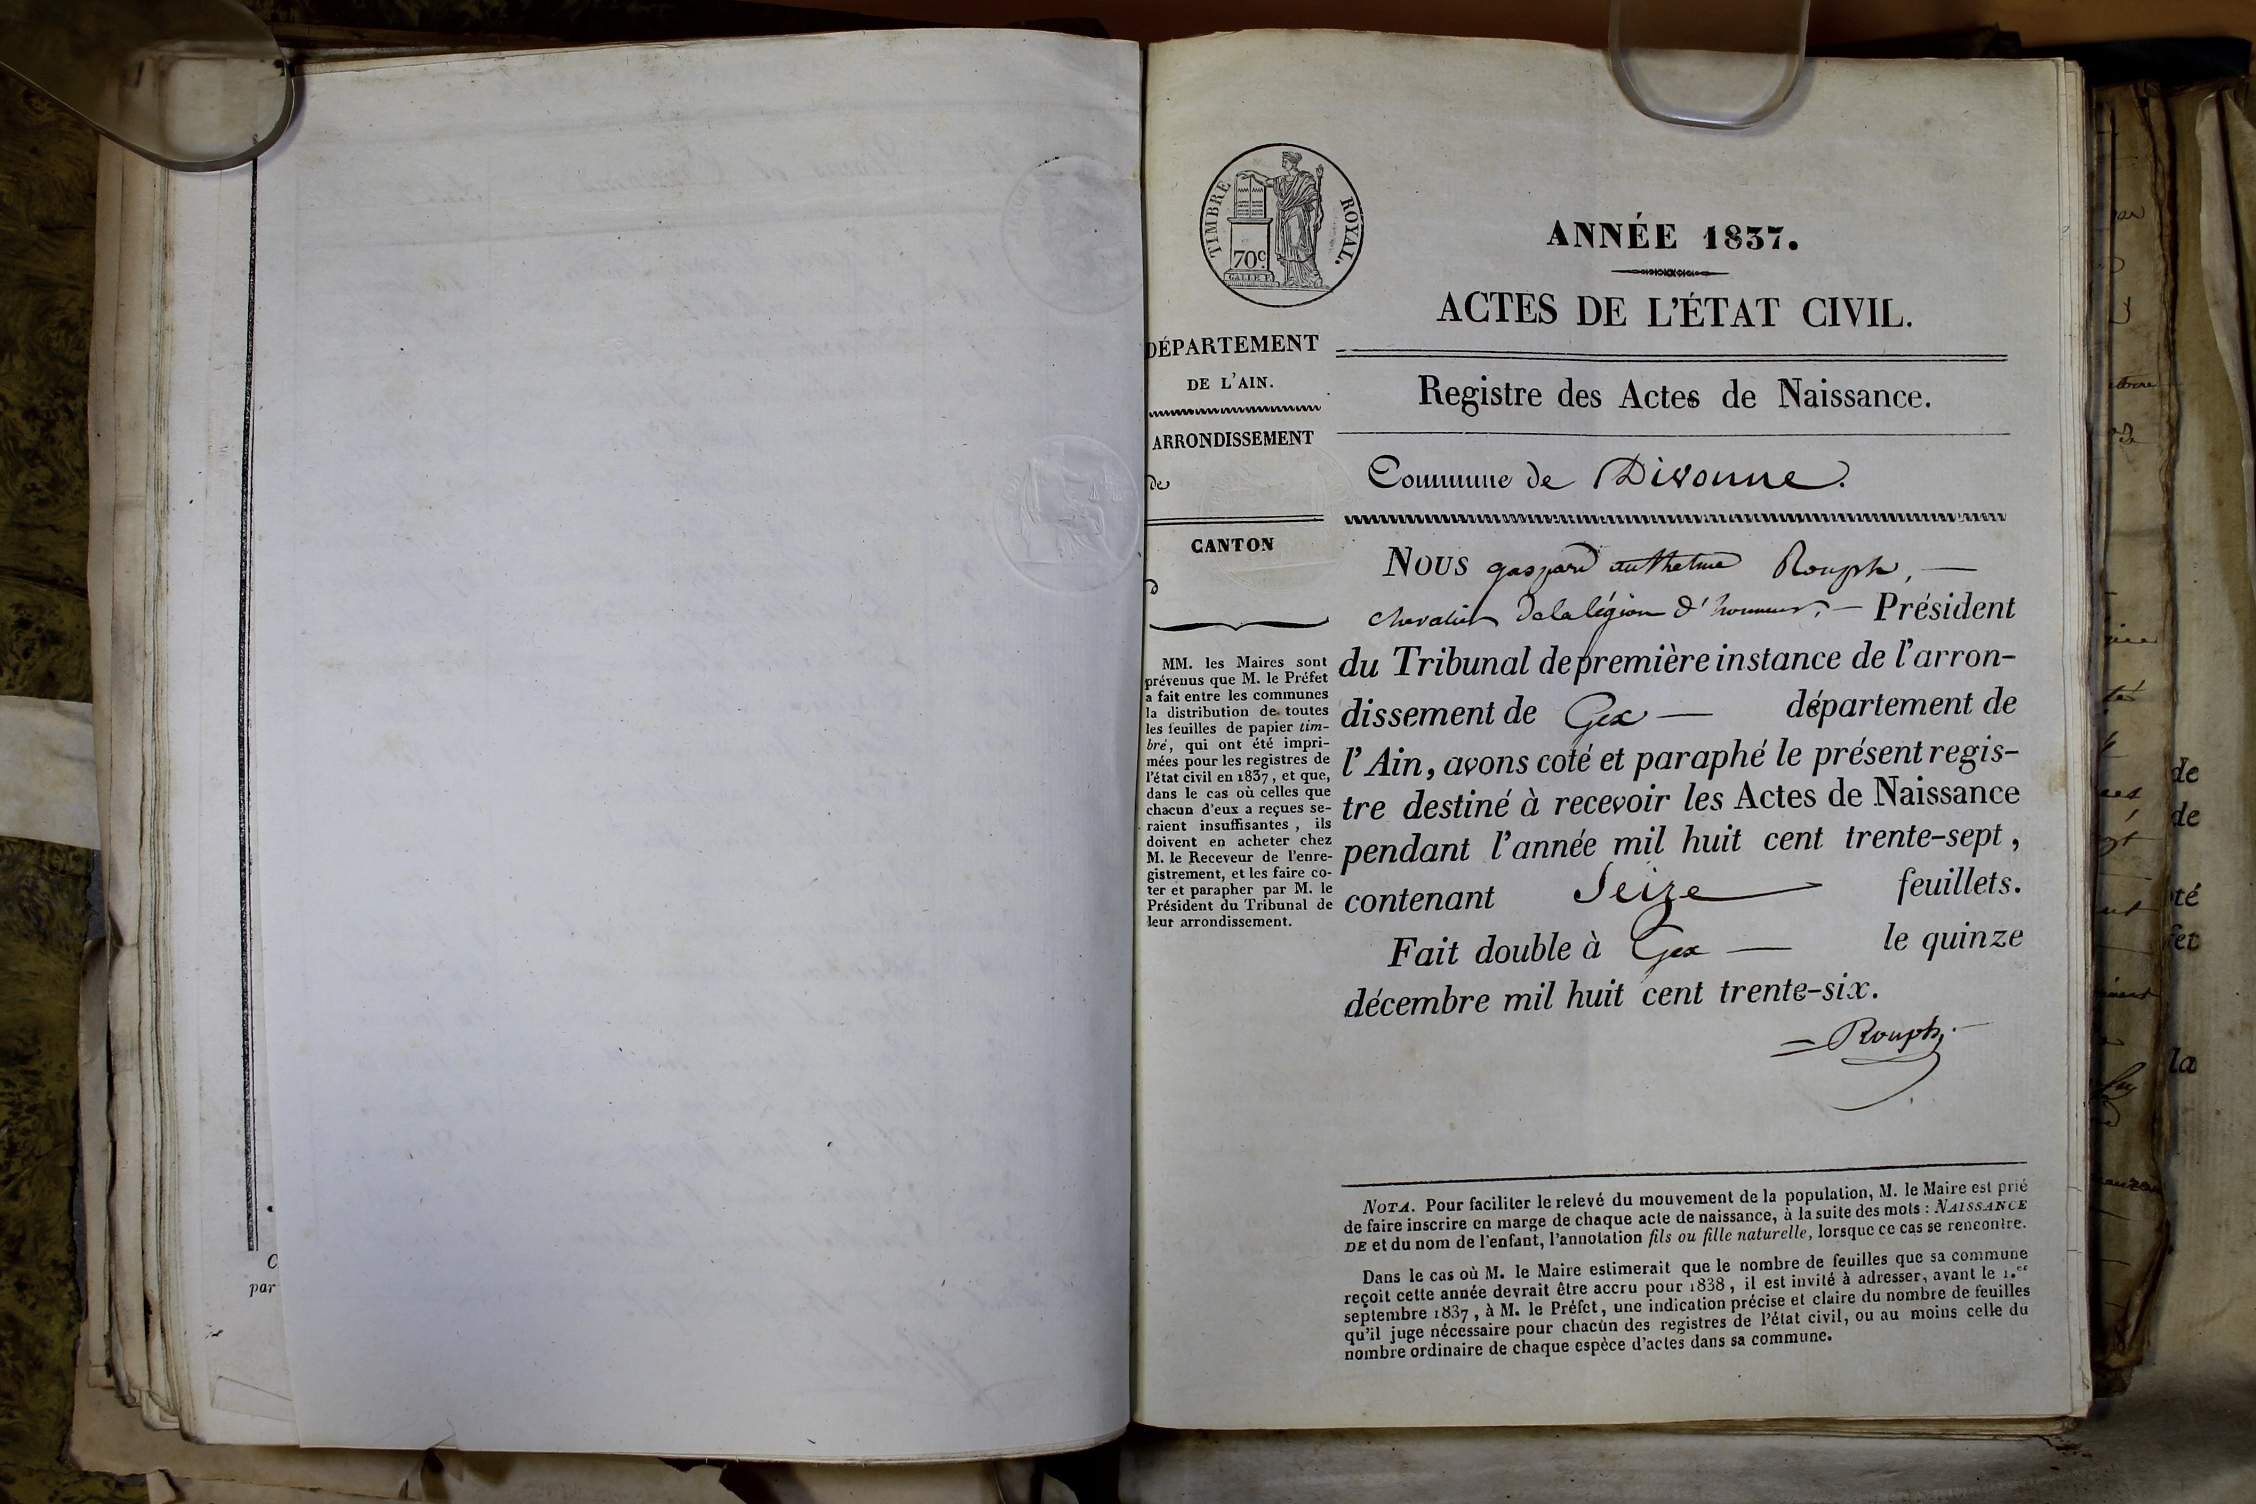 TIMBRE ROYAL.
70c.
GALLE F.
ANNÉE 1837.
ACTES DE L'ÉTAT CIVIL.
DÉPARTEMENT
DE L'AIN.
ARRONDISSEMENT
de
CANTON
d
MM. les Maires sont
prévenus que M. le Préfet
a fait entre les communes
la distribution de toutes
les feuilles de papier tim-
bré, qui ont été impri-
mées pour les registres de
l'état civil en 1837, et que,
dans le cas où celles que
chacun d'eux a reçues se-
raient insuffisantes, ils
doivent en acheter chez
M. le Receveur de l'enre-
gistrement, et les faire co-
ter et parapher par M. le
Président du Tribunal de
leur arrondissement.
Registre des Actes de Naissance.
Commune de Divonne.
NOUS gaspard anthelme Rouph, —
chevalier de la légion d'honneur, — Président
du Tribunal de première instance de l'arron-
dissement de Gex — département de
l'Ain, avons coté et paraphé le présent regis-
tre destiné à recevoir les Actes de Naissance
pendant l'année mil huit cent trente-sept,
contenant Seize feuillets.
Fait double à Gex — le quinze
décembre mil huit cent trente-six.
Rouph
NOTA. Pour faciliter le relevé du mouvement de la population, M. le Maire est prié
de faire inscrire en marge de chaque acte de naissance, à la suite des mots : NAISSANCE
DE et du nom de l'enfant, l'annotation fils ou fille naturelle, lorsque ce cas se rencontre.
Dans le cas où M. le Maire estimerait que le nombre de feuilles que sa commune
reçoit cette année devrait être accru pour 1838, il est invité à adresser, avant le 1.er
septembre 1837, à M. le Préfet, une indication précise et claire du nombre de feuilles
qu'il juge nécessaire pour chacun des registres de l'état civil, ou au moins celle du
nombre ordinaire de chaque espèce d'actes dans sa commune.
C
par
de
de
té
fet
la